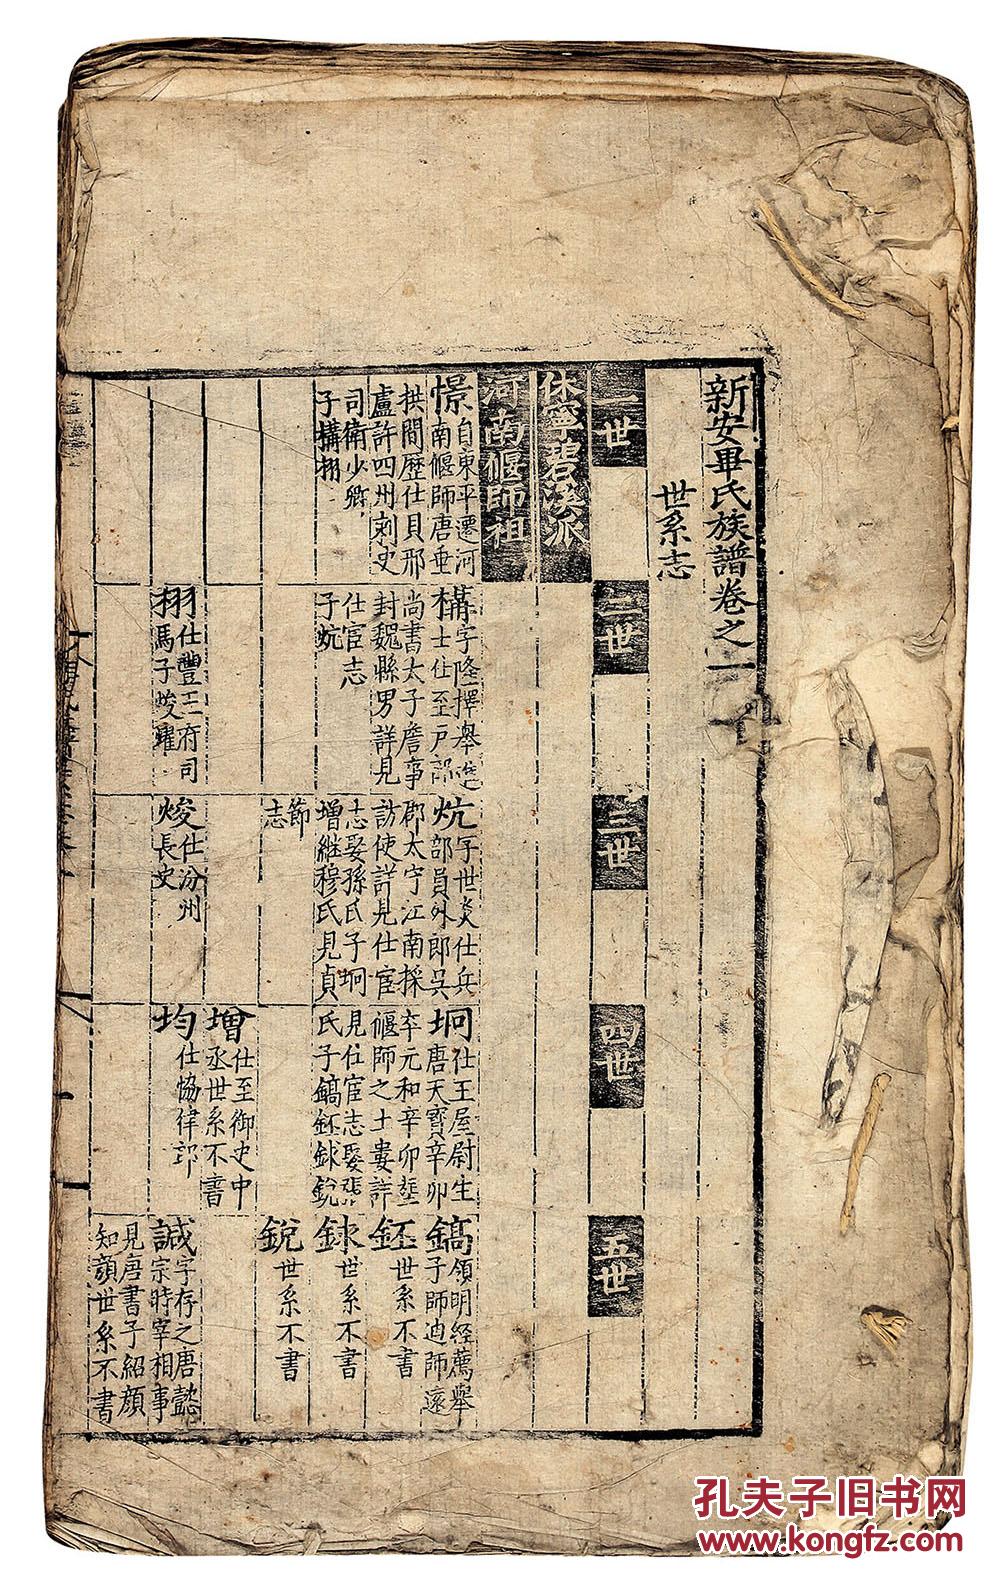 新安畢氏族譜卷之一
世系志
一世
二世
三世
四世
五世
休寧碧溪派
河南偃師祖
憬自東平遷河
南偃師唐垂
拱間歷仕貝邢
盧許四州刺史
司衛少卿
子構栩
構字隆擇舉進
士仕至戶部
尚書太子詹事
封魏縣男詳見
仕宦志
子炕
炕字世炎仕兵
部員外郎吳
郡太守江南採
訪使詳見仕宦
志娶孫氏子坰
增繼穆氏見貞
節
志
坰仕王屋尉生
唐天寶辛卯
卒元和辛卯塟
偃師之土婁詳
見仕宦志娶
氏子鎬鉟銶銳
鎬領明經薦舉
子師迪師遠
鉟世系不書
銶世系不書
銳世系不書
增仕至御史中
丞世系不書
栩仕豐王府司
馬子焌
焌仕汾州
長史
均仕協律郎
諴字存之唐懿
宗時宰相事
見唐書子紹顏
知顏世系不書
孔夫子旧书网
www.kongfz.com